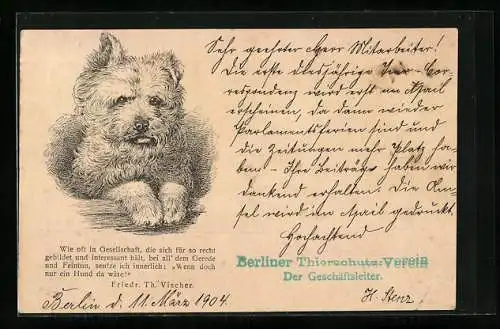 Sehr geehrter Herr Mitarbeiter!
Die erste diesjährige Tier-Cor-
respondenz wird erst im April
erscheinen, da dann wieder
Parlamentsferien sind und
die Zeitungen mehr Platz ha-
ben. – Ihre Beiträge haben wir
dankend erhalten. Die Am-
sel wird im April gedruckt.
Hochachtend
Berliner Thierschutz-Verein
Der Geschäftsleiter.
H. Stenz
Wie oft in Gesellschaft, die sich für so recht
gebildet und interessant hält, bei all' dem Gerede
und Feintun, seufze ich innerlich: „Wenn doch
nur ein Hund da wäre!“
Friedr. Th. Vischer.
Berlin d. 11. März 1904.